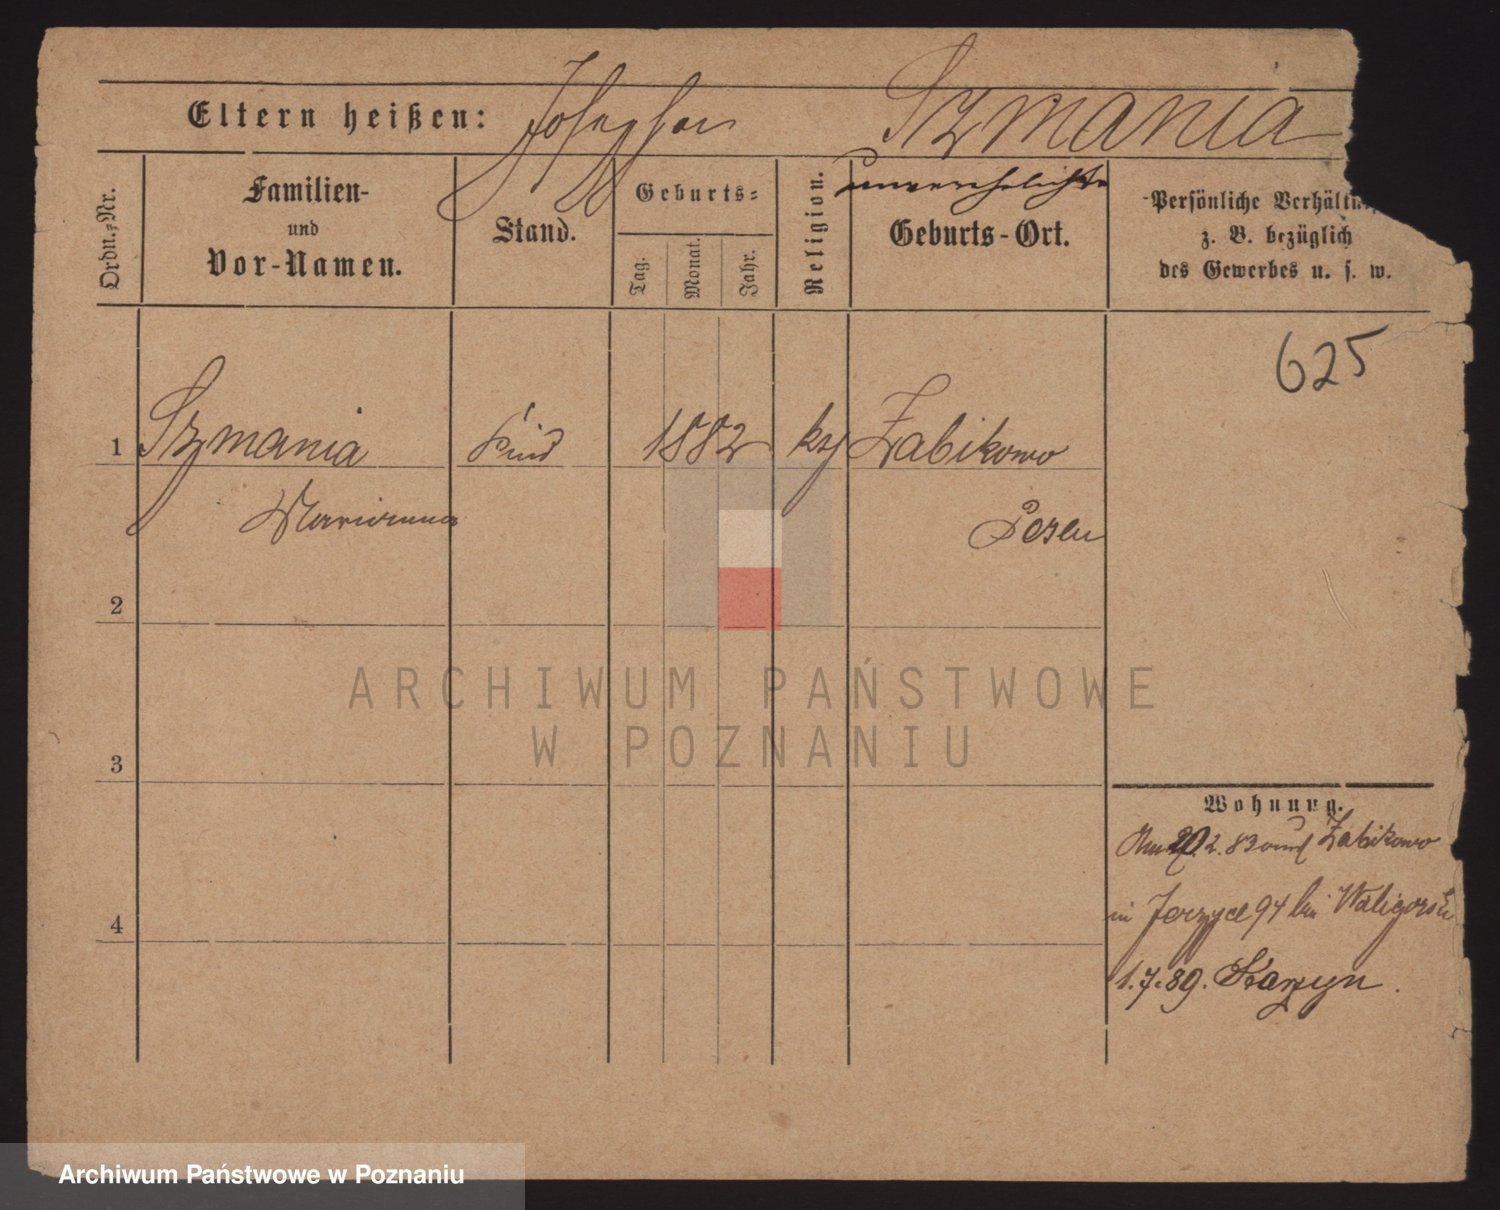 Eltern heißen: Szmania
unverehelichte
Ordn.-Nr.
Familien-
und
Vor-Namen.
Stand.
Geburts-
Tag.
Monat.
Jahr.
Religion.
Geburts-Ort.
Persönliche Verhältn
z. B. bezüglich
des Gewerbes u. s. w.
625
1 Szmania Kind 1882 Zabikowo
Marianna Posen
2
3
4
Wohnung.
20.2.83 Zabikowo
in Jerzyce 94 bei
1.7.89.
ARCHIWUM PAŃSTWOWE
W POZNANIU
Archiwum Państwowe w Poznaniu